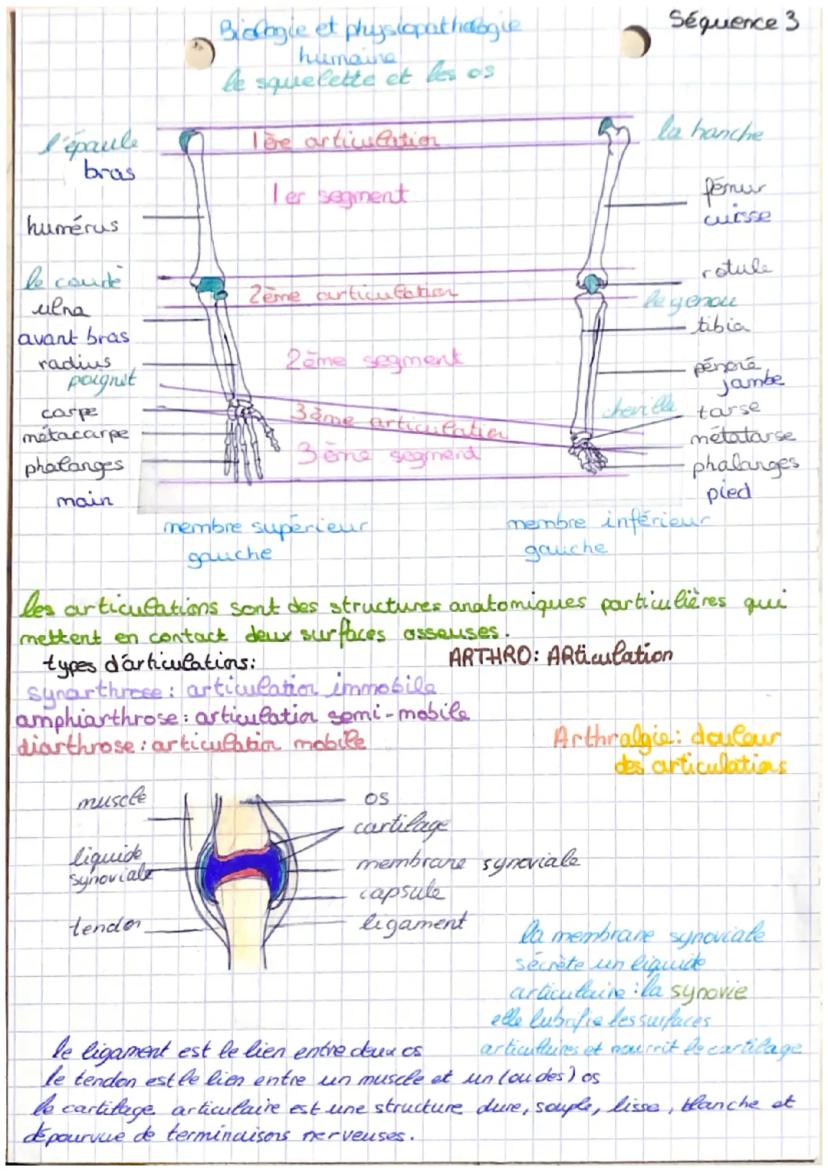 Séquence 3
Biologie et physiopathologie
humaine
le squelette et les os
l'épaule
bras
humérus
le coude
ulna
avant bras
radius
poignet
carpe
métacarpe
phalanges
main
1ère articulation
1er segment
2ème articulation
2ème segment
3ème articulation
3ème segment
la hanche
fémur
cuisse
rotule
le genou
tibia
péroné
jambe
cheville
tarse
métatarse
phalanges
pied
membre supérieur
gauche
membre inférieur
gauche
les articulations sont des structures anatomiques particulières qui
mettent en contact deux surfaces osseuses.
types d'articulations:
ARTHRO: ARticulation
synarthrose: articulation immobile
amphiarthrose: articulation semi-mobile
diarthrose: articulation mobile
Arthralgie: douleur
des articulations
muscle
liquide
synoviale
tendon
os
cartilage
membrane synoviale
capsule
ligament
la membrane synoviale
sécrète un liquide
articulaire: la synovie
elle lubrifie les surfaces
articulaires et nourrit le cartilage
le ligament est le lien entre deux os
le tendon est le lien entre un muscle et un (ou des) os
le cartilage articulaire est une structure dure, souple, lisse, blanche et
dépourvue de terminaisons nerveuses.